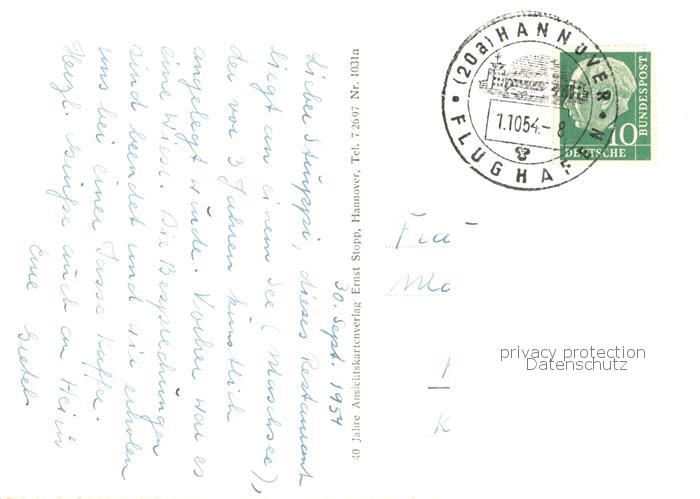 30. Sept. 1954
Lieber Struppi, dieses Restaurant
liegt an einem See (Maschsee),
der vor 3 Jahren künstlich
angelegt wurde. Vorher war es
eine Wiese. Die Besprechungen
sind beendet und wir erholen
uns bei einer Tasse Kaffee.
Herzl. Grüße auch an Heini
Eure Gretel
40 Jahre Ansichtskartenverlag Ernst Stopp, Hannover, Tel. 7 26 97 Nr. 1031a
(20a) HANNOVER
1.10.54.-8
FLUGHAFEN
10
DEUTSCHE
BUNDESPOST
Frau
privacy protection
Datenschutz